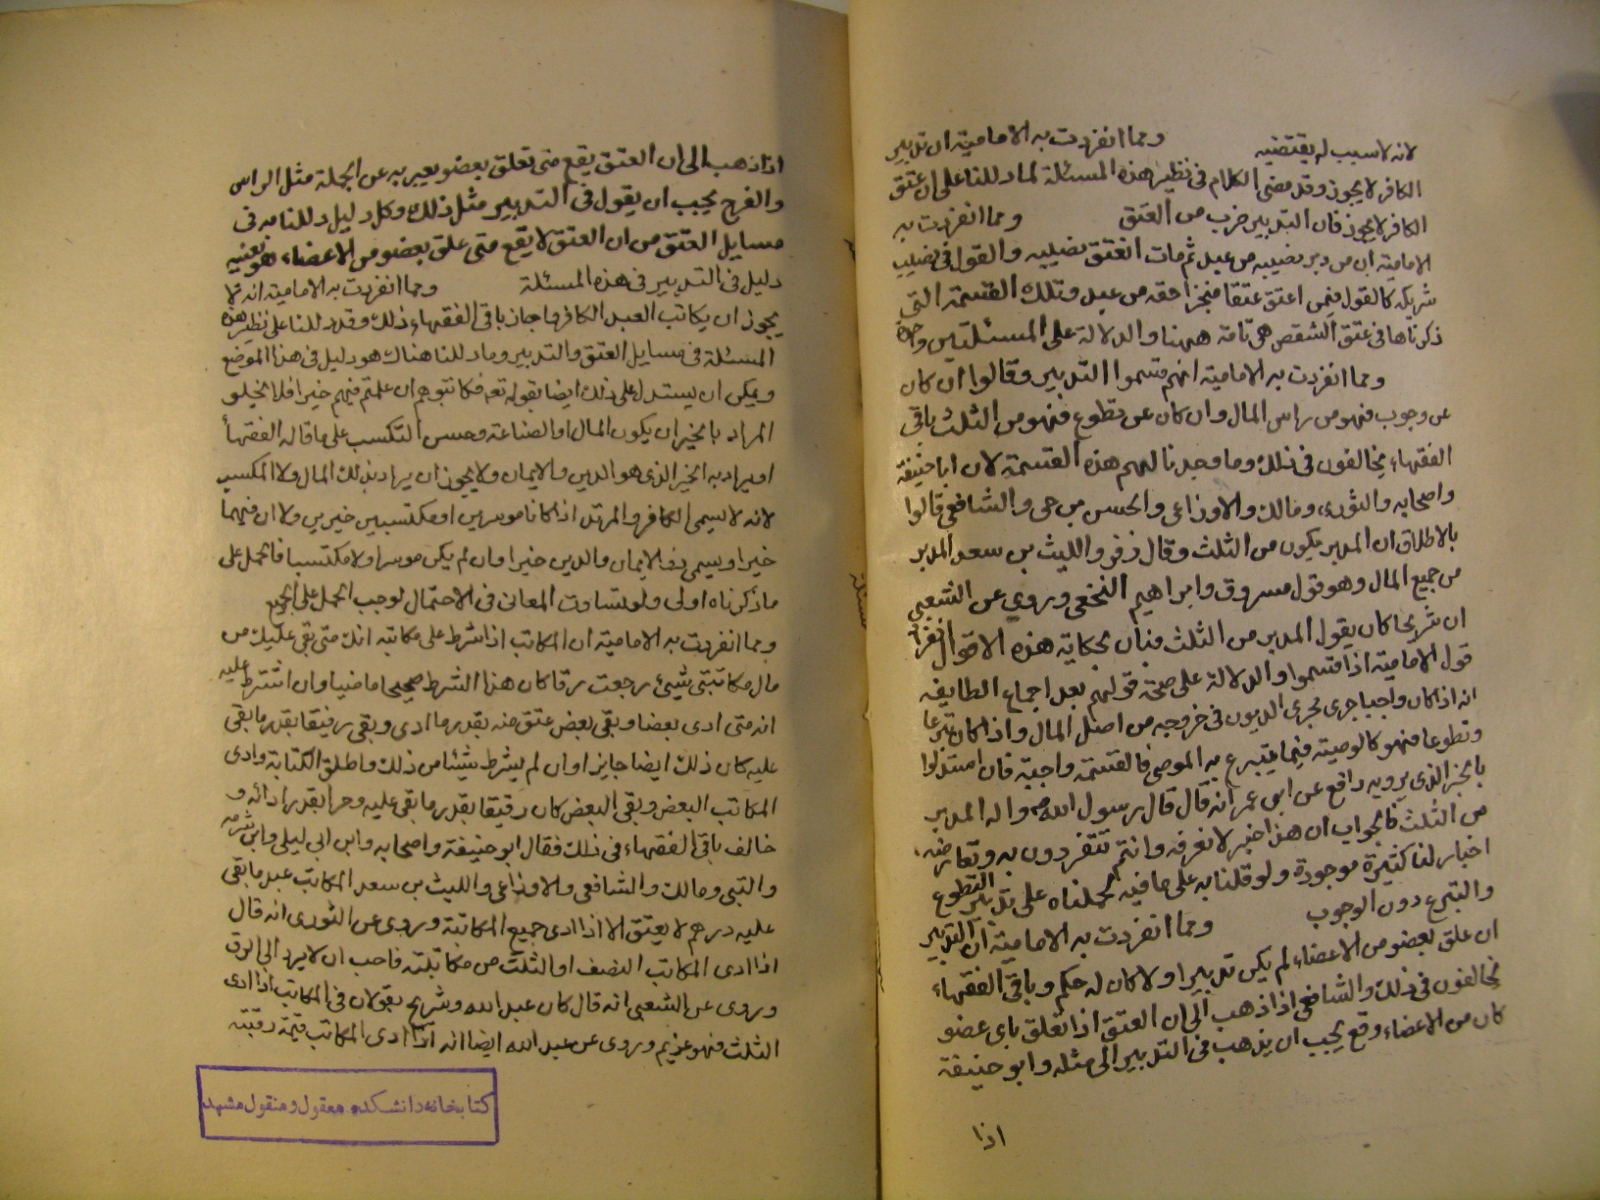 لانه لا سبب له يقتضيه ومما انفردت به الامامية ان تدبير
الكافر لا يجوز وقد مضى الكلام فى نظير هذه المسئلة لما دللنا على ان عتق
الكافر لا يجوز فان التدبير ضرب من العتق ومما انفردت به
الامامية ان من دبر نصيبه من عبد ثم مات انعتق نصيبه والقول فى نصيب
شريكه كالقول فيمن اعتق عتقا منجزا حقه من عبد وتلك القسمة التى
ذكرناها فى عتق الشقص هى تامة ههنا والدلالة على المسئلتين واحدة
ومما انفردت به الامامية انهم قسموا التدبير وقالوا ان كان
عن وجوب فهو من راس المال وان كان عن تطوع فهو من الثلث وباقى
الفقهاء يخالفون فى ذلك وما وجدنا لهم هذه القسمة لان ابا حنيفة
واصحابه والثورى ومالك والاوزاعى والحسن بن حى والشافعى قالوا
بالاطلاق ان المدبر يكون من الثلث وقال زفر والليث بن سعد المدبر
من جميع المال وهو قول مسروق وابراهيم النخعى وروى عن الشعبى
ان شريحا كان يقول المدبر من الثلث فبان بحكاية هذه الاقوال انفراد
قول الامامية اذا قسموا والدلالة على صحة قولهم بعد اجماع الطايفه
انه اذا كان واجبا جرى مجرى الديون فى خروجه من اصل المال واذا كان تبرعا
وتطوعا فهو كالوصية فيما يتبرع به الموصى فالقسمة واجبة فان استدلوا
بالخبر الذى يرويه رافع عن ابى عمر انه قال قال رسول الله واله المدبر
من الثلث فالجواب ان هذا خبر لا نعرفه وانتم تتفردون به وتعارضه
اخبار لنا كثيرة موجودة ولو قلنا به على ما فيه لحملناه على تدبير التطوع
والتبرع دون الوجوب ومما انفردت به الامامية ان التدبير
ان علق بعضو من الاعضاء لم يكن تدبيرا ولا كان له حكم وباقى الفقهاء
يخالفون فى ذلك والشافعى اذا ذهب الى ان العتق اذا تعلق باى عضو
كان من الاعضاء وقع يجب ان يذهب فى التدبير الى مثله وابو حنيفة
اذا
اذا ذهب الى ان العتق يقع متى تعلق بعضو يعبر به عن الجملة مثل الراس
والفرج يجب ان يقول فى التدبير مثل ذلك وكل دليل دللنا به فى
مسايل العتق من ان العتق لا يقع متى علق بعضو من الاعضاء هو بعينه
دليل فى التدبير فى هذه المسئلة ومما انفردت به الامامية انه لا
يجوز ان يكاتب العبد الكافر واجاز باقى الفقهاء ذلك وقد دللنا على نظير هذه
المسئلة فى مسايل العتق والتدبير وما دللنا هناك هو دليل فى هذا الموضع
ويمكن ان يستدل على ذلك ايضا بقوله تعه فكاتبوهم ان علمتم فيهم خيرا فلا يخلو
المراد بالخير ان يكون المال او الصناعة وحسن التكسب على ما قاله الفقهاء
او يراد به الخير الذى هو الدين والايمان ولا يجوز ان يراد بذلك المال ولا المكسب
لانه لا يسمى الكافر والمرتد اذا كانا موسرين او مكتسبين خيرين ولا ان فيهما
خيرا ويسمى ذو الايمان والدين خيرا وان لم يكن موسرا ولا مكتسبا فالحمل على
ما ذكرناه اولى ولو تساوت المعانى فى الاحتمال لوجب الحمل على الجميع
ومما انفردت به الامامية ان المكاتب اذا شرط على مكاتبه انك متى بقى عليك من
مال مكاتبتى شيئ رجعت رقا كان هذا الشرط صحيحا ماضيا وان اشترط عليه
انه متى ادى بعضا وبقى بعض عتق منه بقدر ما ادى وبقى رقيقا بقدر ما بقى
عليه كان ذلك ايضا جايزا وان لم يشرط شيئا من ذلك واطلق الكتابة وادى
المكاتب البعض وبقى البعض كان رقيقا بقدر ما بقى عليه وحرا بقدر ادائه و
خالف باقى الفقهاء فى ذلك فقال ابو حنيفة واصحابه وابن ابى ليلى وابن شبرمه
والتبى ومالك والشافعى والاوزاعى والليث بن سعد المكاتب عبد ما بقى
عليه درهم لا يعتق الا اذا ادى جميع المكاتبة وروى عن الثورى انه قال
اذا ادى المكاتب النصف او الثلث من مكاتبته فاحب ان لا يرد الى الرق
وروى عن الشعبى انه قال كان عبد الله وشريح يقولان فى المكاتب اذا ادى
الثلث فهو غريم وروى عن عبد الله ايضا انه اذا ادى المكاتب قيمة رقبته
كتابخانه دانشكده معقول و منقول مشهد